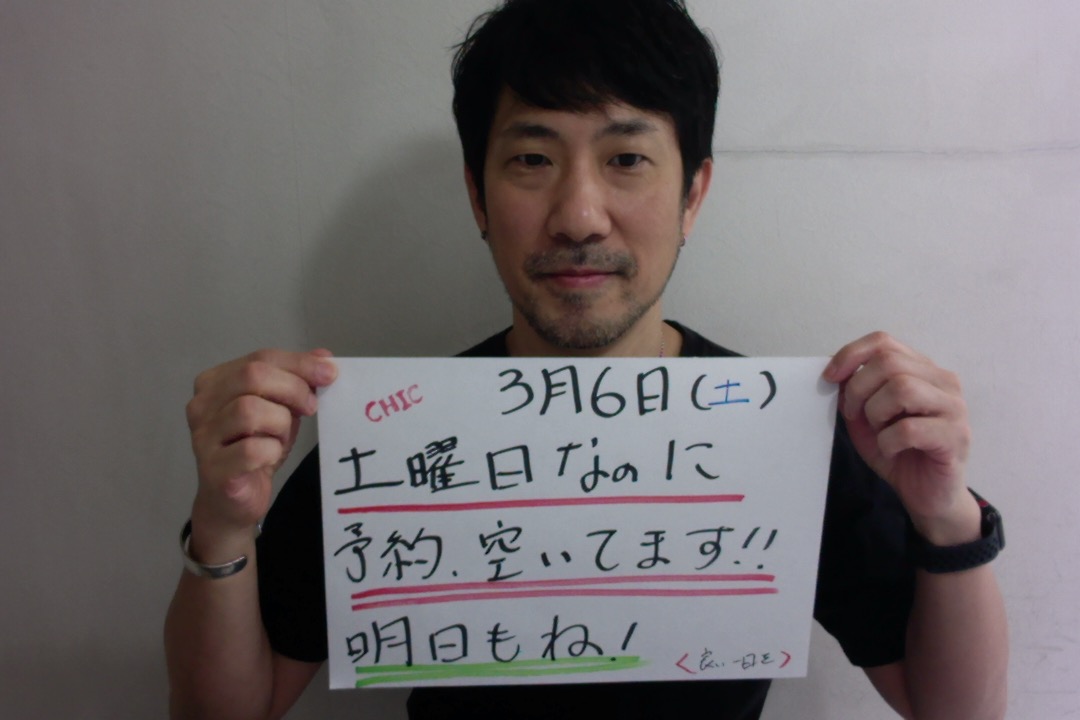 CHIC 3月6日(土)
土曜日なのに
予約、空いてます!!
明日もね!
<良い一日を>